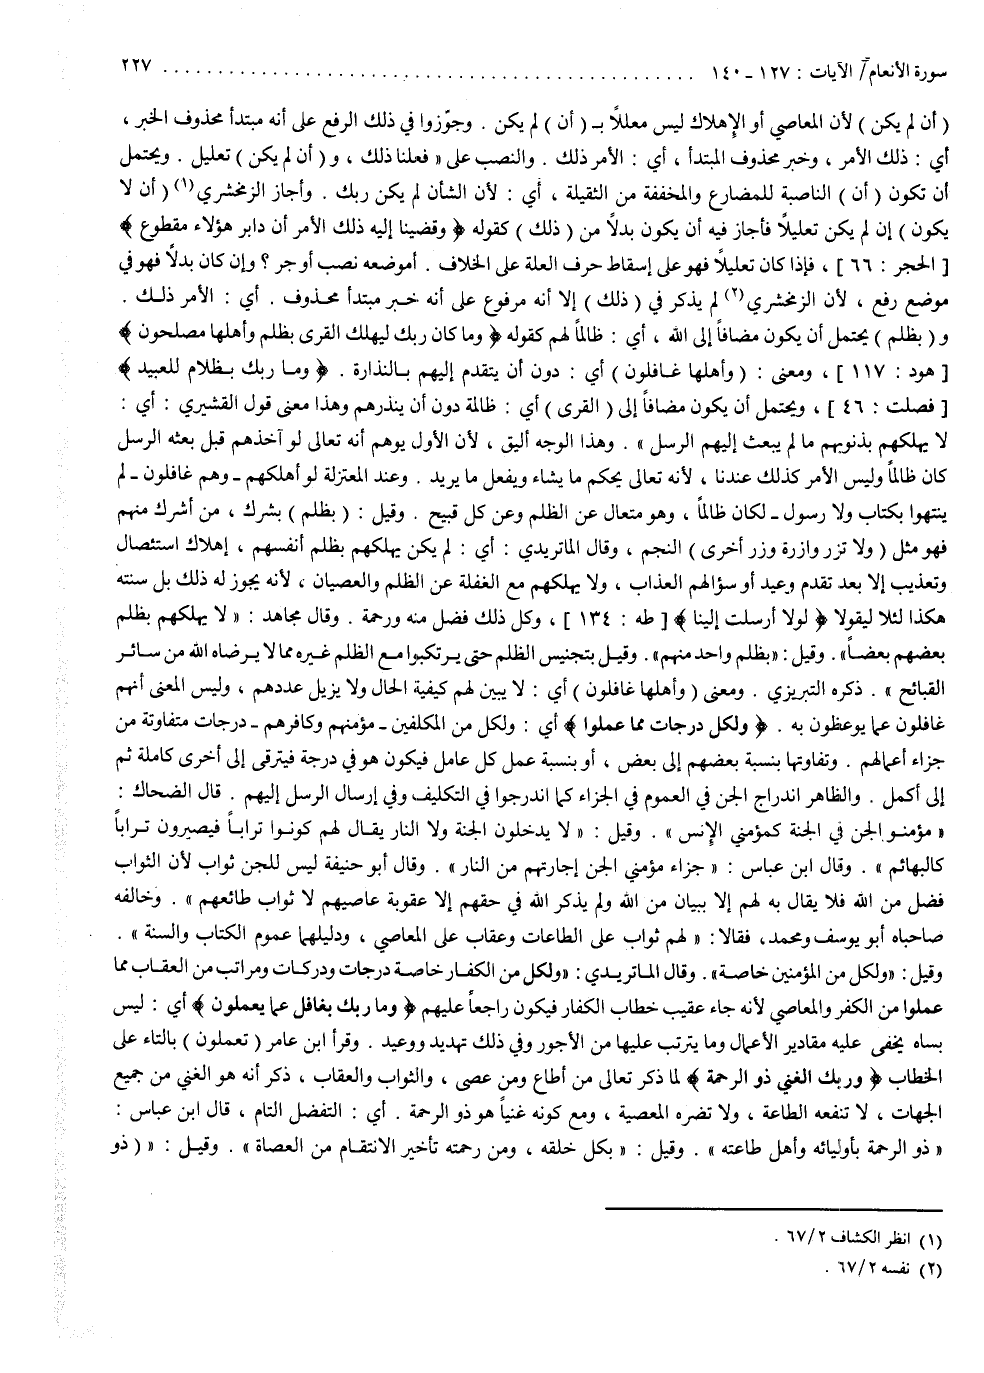 سورة الأنعام / الآيات : ١٢٧ ـ ١٤٠ ................................................ ٢٢٧
( أن لم يكن ) لأن المعاصي أو الإهلاك ليس معللاً بـ ( أن ) لم يكن . وجوّزوا في ذلك الرفع على أنه مبتدأ محذوف الخبر ،
أي : ذلك الأمر ، وخبر محذوف المبتدأ ، أي : الأمر ذلك . والنصب على « فعلنا ذلك ، و ( أن لم يكن ) تعليل . ويحتمل
أن تكون ( أن ) الناصبة للمضارع والمخففة من الثقيلة ، أي : لأن الشأن لم يكن ربك . وأجاز الزمخشري (١) ( أن لا
يكون ) إن لم يكن تعليلاً فأجاز فيه أن يكون بدلاً من ( ذلك ) كقوله ﴿ وقضينا إليه ذلك الأمر أن دابر هؤلاء مقطوع ﴾
[ الحجر : ٦٦ ] ، فإذا كان تعليلاً فهو على إسقاط حرف العلة على الخلاف . أموضعه نصب أو جر ؟ وإن كان بدلاً فهو في
موضع رفع ، لأن الزمخشري (٢) لم يذكر في ( ذلك ) إلا أنه مرفوع على أنه خبر مبتدأ محذوف . أي : الأمر ذلك .
و ( بظلم ) يحتمل أن يكون مضافاً إلى الله ، أي : ظالماً لهم كقوله ﴿ وما كان ربك ليهلك القرى بظلم وأهلها مصلحون ﴾
[ هود : ١١٧ ] ، ومعنى : ( وأهلها غافلون ) أي : دون أن يتقدم إليهم بالنذارة . ﴿ وما ربك بظلام للعبيد ﴾
[ فصلت : ٤٦ ] ، ويحتمل أن يكون مضافاً إلى ( القرى ) أي : ظالمة دون أن ينذرهم وهذا معنى قول القشيري : أي :
لا يهلكهم بذنوبهم ما لم يبعث إليهم الرسل » . وهذا الوجه أليق ، لأن الأول يوهم أنه تعالى لو آخذهم قبل بعثه الرسل
كان ظالماً وليس الأمر كذلك عندنا ، لأنه تعالى يحكم ما يشاء ويفعل ما يريد . وعند المعتزلة لو أهلكهم ـ وهم غافلون ـ لم
ينتهوا بكتاب ولا رسول ـ لكان ظالماً ، وهو متعال عن الظلم وعن كل قبيح . وقيل : ( بظلم ) بشرك ، من أشرك منهم
فهو مثل ( ولا تزر وازرة وزر أخرى ) النجم ، وقال الماتريدي : أي : لم يكن يهلكهم بظلم أنفسهم ، إهلاك استئصال
وتعذيب إلا بعد تقدم وعيد أو سؤالهم العذاب ، ولا يهلكهم مع الغفلة عن الظلم والعصيان ، لأنه يجوز له ذلك بل سنته
هكذا لئلا ليقولا ﴿ لولا أرسلت إلينا ﴾ [ طه : ١٣٤ ] ، وكل ذلك فضل منه ورحمة . وقال مجاهد : « لا يهلكهم بظلم
بعضهم بعضاً» . وقيل : «بظلم واحد منهم» . وقيل بتجنيس الظلم حتى يرتكبوا مع الظلم غيره مما لا يرضاه الله من سائر
القبائح » . ذكره التبريزي . ومعنى ( وأهلها غافلون ) أي : لا يبين لهم كيفية الحال ولا يزيل عددهم ، وليس المعنى أنهم
غافلون عما يوعظون به . ﴿ ولكل درجات مما عملوا ﴾ أي : ولكل من المكلفين ـ مؤمنهم وكافرهم ـ درجات متفاوتة من
جزاء أعمالهم . وتفاوتها بنسبة بعضهم إلى بعض ، أو بنسبة عمل كل عامل فيكون هو في درجة فيترقى إلى أخرى كاملة ثم
إلى أكمل . والظاهر اندراج الجن في العموم في الجزاء كما اندرجوا في التكليف وفي إرسال الرسل إليهم . قال الضحاك :
« مؤمنو الجن في الجنة كمؤمني الإنس » . وقيل : « لا يدخلون الجنة ولا النار يقال لهم كونوا تراباً فيصيرون تراباً
كالبهائم » . وقال ابن عباس : « جزاء مؤمني الجن إجارتهم من النار » . وقال أبو حنيفة ليس للجن ثواب لأن الثواب
فضل من الله فلا يقال به لهم إلا ببيان من الله ولم يذكر الله في حقهم إلا عقوبة عاصيهم لا ثواب طائعهم » . وخالفه
صاحباه أبو يوسف ومحمد ، فقالا : « لهم ثواب على الطاعات وعقاب على المعاصي ، ودليلهما عموم الكتاب والسنة » .
وقيل : «ولكل من المؤمنين خاصة» . وقال الماتريدي : «ولكل من الكفار خاصة درجات ودركات ومراتب من العقاب مما
عملوا من الكفر والمعاصي لأنه جاء عقيب خطاب الكفار فيكون راجعاً عليهم ﴿ وما ربك بغافل عما يعملون ﴾ أي : ليس
بساه يخفى عليه مقادير الأعمال وما يترتب عليها من الأجور وفي ذلك تهديد ووعيد . وقرأ ابن عامر ( تعملون ) بالتاء على
الخطاب ﴿ وربك الغني ذو الرحمة ﴾ لما ذكر تعالى من أطاع ومن عصى ، والثواب والعقاب ، ذكر أنه هو الغني من جميع
الجهات ، لا تنفعه الطاعة ، ولا تضره المعصية ، ومع كونه غنياً هو ذو الرحمة . أي : التفضل التام ، قال ابن عباس :
« ذو الرحمة بأوليائه وأهل طاعته » . وقيل : « بكل خلقه ، ومن رحمته تأخير الانتقام من العصاة » . وقيل : « ( ذو
(١) انظر الكشاف ٦٧/٢ .
(٢) نفسه ٦٧/٢ .